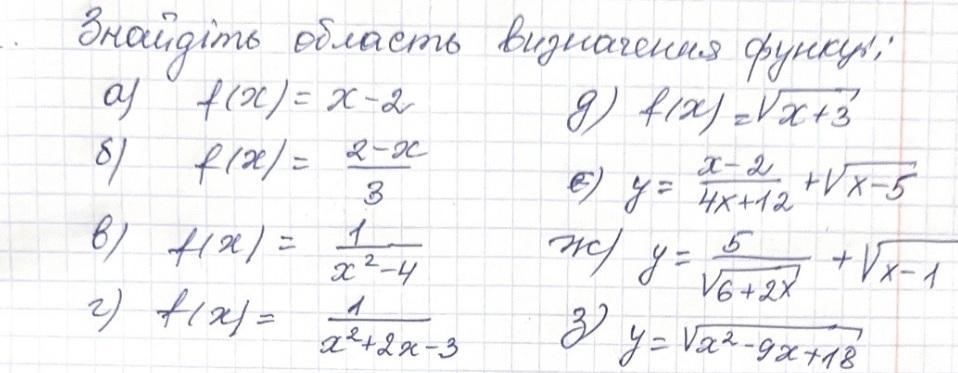 Знайдіть область визначення функції
а) f(x) = x-2
б) f(x) = (2-x)/3
в) f(x) = 1/(x²-4)
г) f(x) = 1/(x²+2x-3)
д) f(x) = √(x+3)
е) y = (x-2)/(4x+12) + √(x-5)
ж) y = 5/√(6+2x) + √(x-1)
з) y = √(x²-9x+18)